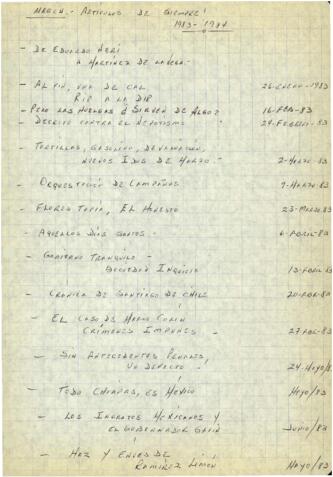 MARCH - ARTICULOS DE SIEMPRE!
1983-1984
- DE EDUARDO NERI
A MARTINEZ DE LA VEGA -
- AL FIN, UNA DE CAL
RIP A LA DIP 26-ENERO-1983
- PERO LAS HUELGAS ¿ SIRVEN DE ALGO? 16-FEB-83
- DECRETO CONTRA EL NEPOTISMO 24-FEBRERO-83
- TORTILLAS, GASOLINA, DEVALUACION,
NUEVOS IDUS DE MARZO - 2-MARZO-83
- ORQUESTACIÓN DE CAMPAÑAS 9-MARZO-83
- FLORES TAPIA, EL HONESTO 23-MARZO-83
- AQUELLOS DIAS SANTOS - 6-ABRIL-83
- GOBIERNO TRANQUILO -
SOCIEDAD INQUIETA 13-ABRIL 83
- CRONICA DE SANTIAGO DE CHILE 20-ABR-83
- EL CASO DE MARIO
CRÍMENES IMPUNES - 27-ABR-83
- SIN ANTECEDENTES PENALES,
UN DEFECTO - 24-MAYO/83
- TODO CHIAPAS, ES MEXICO MAYO/83
- LOS INGRATOS MEXICANOS Y
EL GOBERNADOR JUNIO/83
- HAZ Y ENVES DE
RAMIREZ LIMÓN MAYO/83